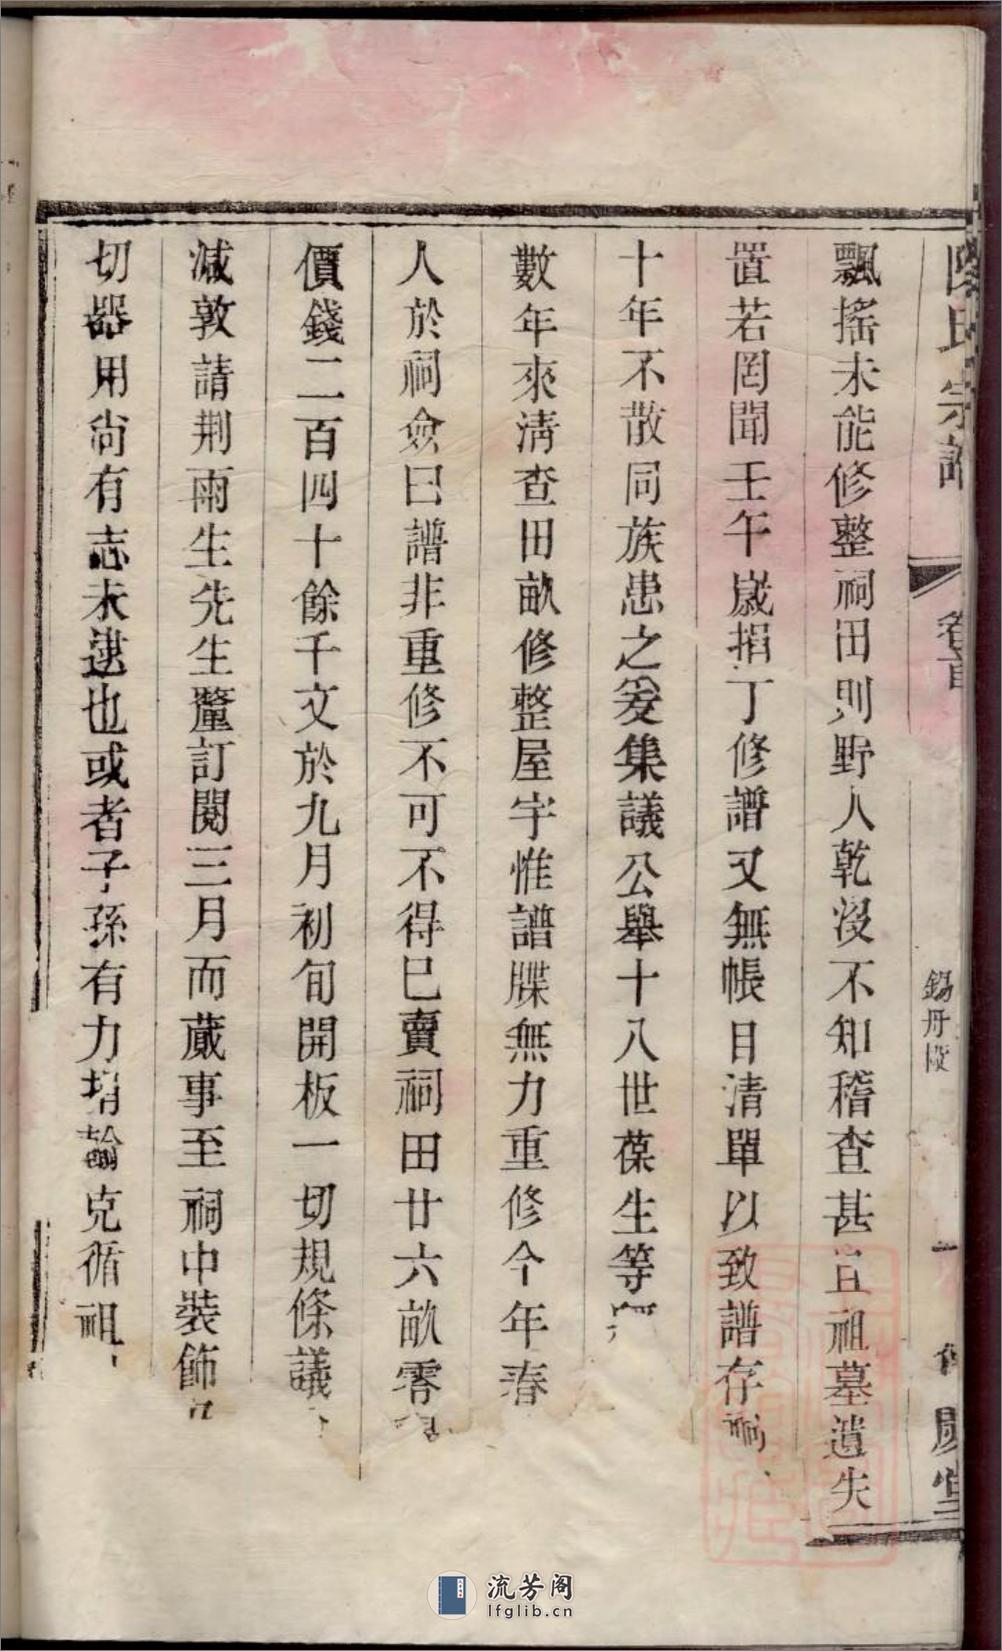 氏宗譜
卷首
錫丹段
一
堂
飄搖未能修整祠田則野人乾沒不知稽查甚宜祖墓遺失
置若罔聞壬午歲捐丁修譜又無帳目清單以致譜存祠
十年不散同族患之爰集議公舉十八世葆生等
數年來清查田畝修整屋宇惟譜牒無力重修今年春
人於祠僉曰譜非重修不可不得已賣祠田廿六畝零
價錢二百四十餘千文於九月初旬開板一切規條議
減敦請荆雨生先生釐訂閱三月而蕆事至祠中裝飾
切器用尚有志未逮也或者子孫有力捐輸克循祖
流芳阁
lfglib.cn